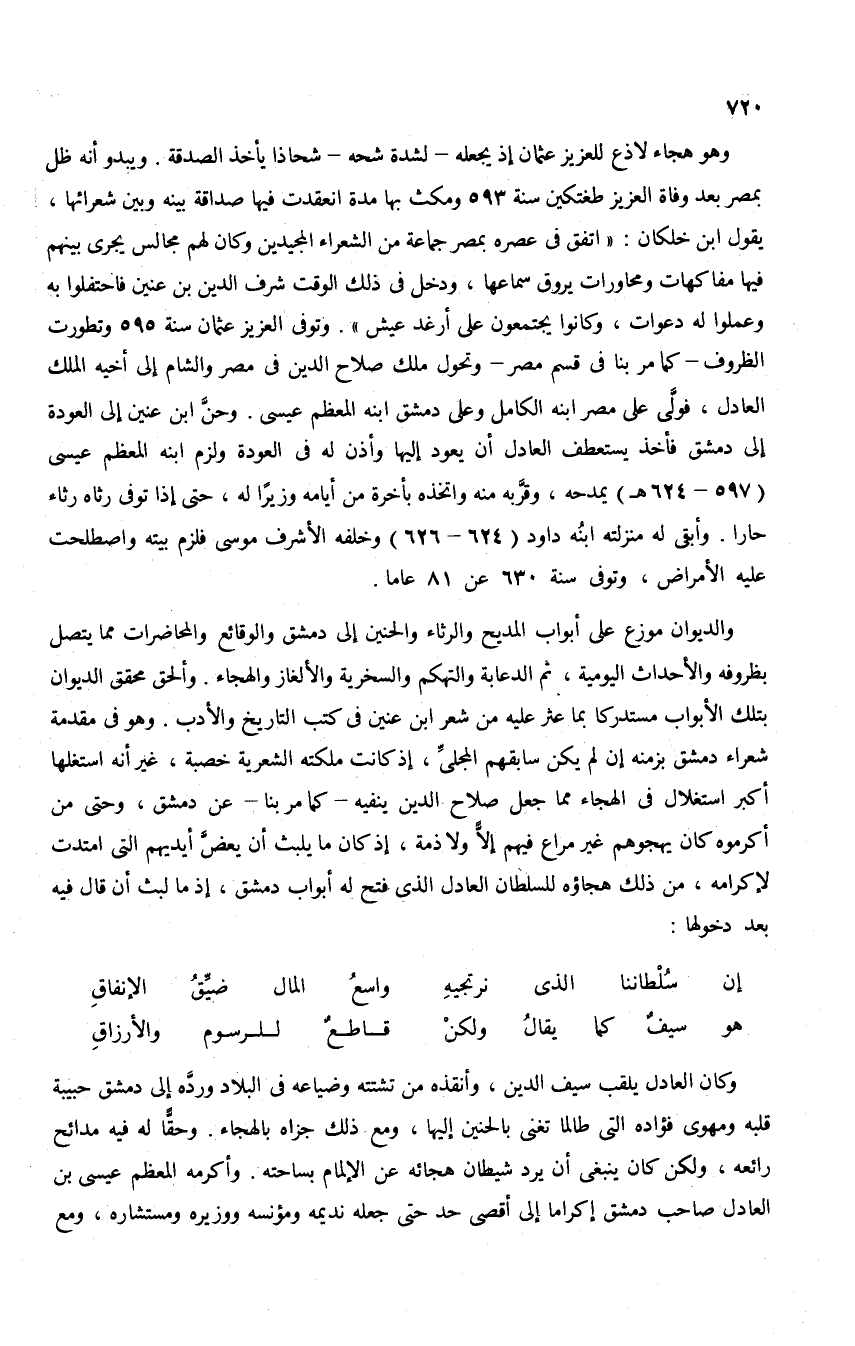 ٧٢٠
وهو هجاء لاذع للعزيز عثمان إذ يجعله – لشدة شحه – شحاذا يأخذ الصدقة . ويبدو أنه ظل
بمصر بعد وفاة العزيز طغتكين سنة ٥٩٣ ومكث بها مدة انعقدت فيها صداقة بينه وبين شعرائها ،
يقول ابن خلكان : « اتفق فى عصره بمصر جماعة من الشعراء المجيدين وكان لهم مجالس يجرى بينهم
فيها مفاكهات ومحاورات يروق سماعها ، ودخل فى ذلك الوقت شرف الدين بن عنين فاحتفلوا به
وعملوا له دعوات ، وكانوا يجتمعون على أرغد عيش » . وتوفى العزيز عثمان سنة ٥٩٥ وتطورت
الظروف – كما مر بنا فى قسم مصر – وتحول ملك صلاح الدين فى مصر والشام إلى أخيه الملك
العادل ، فولَّى على مصر ابنه الكامل وعلى دمشق ابنه المعظم عيسى . وحنَّ ابن عنين إلى العودة
إلى دمشق فأخذ يستعطف العادل أن يعود إليها وأذن له فى العودة ولزم ابنه المعظم عيسى
( ٥٩٧ – ٦٢٤ هـ ) يمدحه ، وقرَّبه منه واتخذه بأخرة من أيامه وزيرًا له ، حتى إذا توفى رثاه رثاء
حارا . وأبقى له منزلته ابنُه داود ( ٦٢٤ – ٦٢٦ ) وخلفه الأشرف موسى فلزم بيته واصطلحت
عليه الأمراض ، وتوفى سنة ٦٣٠ عن ٨١ عاما .
والديوان موزع على أبواب المديح والرثاء والحنين إلى دمشق والوقائع والمحاضرات مما يتصل
بظروفه والأحداث اليومية ، ثم الدعابة والتهكم والسخرية والألغاز والهجاء . وألحق محقق الديوان
بتلك الأبواب مستدركا بما عثر عليه من شعر ابن عنين فى كتب التاريخ والأدب . وهو فى مقدمة
شعراء دمشق بزمنه إن لم يكن سابقهم المجلىِّ ، إذ كانت ملكته الشعرية خصبة ، غير أنه استغلها
أكبر استغلال فى الهجاء مما جعل صلاح الدين ينفيه – كما مر بنا – عن دمشق ، وحتى من
أكرموه كان يهجوهم غير مراع فيهم إلاًّ ولا ذمة ، إذ كان ما يلبث أن يعضَّ أيديهم التى امتدت
لإكرامه ، من ذلك هجاؤه للسلطان العادل الذى فتح له أبواب دمشق ، إذ ما لبث أن قال فيه
بعد دخولها :
إن سُلْطاننا الذى نرتجيهِ واسعُ المال ضيِّقُ الإنفاقِ
هو سيفٌ كما يقالُ ولكنْ قـاطـعٌ لـلـرسوم والأرزاقِ
وكان العادل يلقب سيف الدين ، وأنقذه من تشتته وضياعه فى البلاد وردَّه إلى دمشق حبيبة
قلبه ومهوى فؤاده التى طالما تغنى بالحنين إليها ، ومع ذلك جزاه بالهجاء . وحقًّا له فيه مدائح
رائعه ، ولكن كان ينبغى أن يرد شيطان هجائه عن الإلمام بساحته . وأكرمه المعظم عيسى بن
العادل صاحب دمشق إكراما إلى أقصى حد حتى جعله نديمه ومؤنسه ووزيره ومستشاره ، ومع